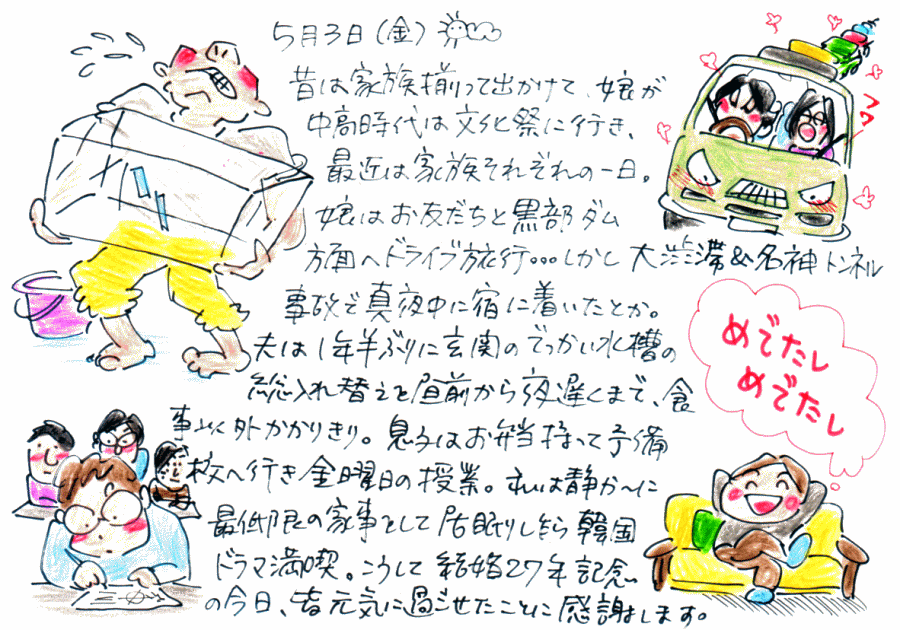 5月3日(金)
昔は家族揃って出かけて、娘が
中高時代は文化祭に行き、
最近は家族それぞれの一日。
娘はお友だちと黒部ダム
方面へドライブ旅行…しかし 大渋滞&名神トンネル
事故で真夜中に宿に着いたとか。
夫は1年半ぶりに玄関のでっかい水槽の
総入れ替えを昼前から夜遅くまで、食
事以外かかりきり。息子はお弁当持って予備
校へ行き金曜日の授業。私は静か〜に
最低限の家事をして居眠りしながら韓国
ドラマ満喫。こうして結婚27年記念
の今日、皆元気に過ごせたことに感謝します。
めでたし
めでたし